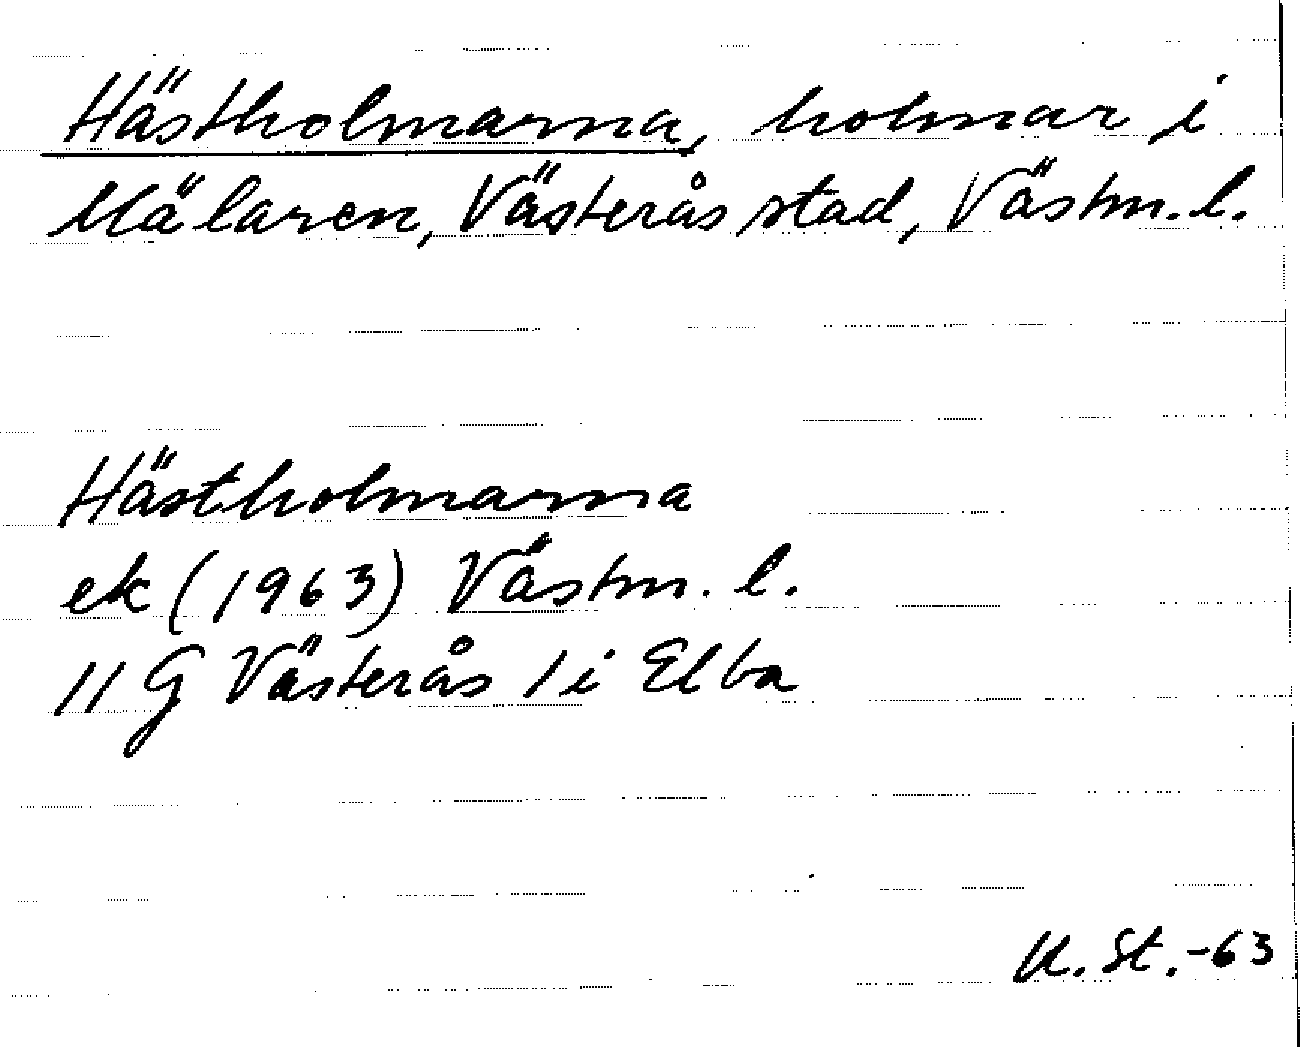 Hästholmarna, holmar i
Mälaren, Västerås stad, Västm. l.
Hästholmarna
ek (1963) Västm. l.
11 G Västerås 1 i Elba
U. St. -63